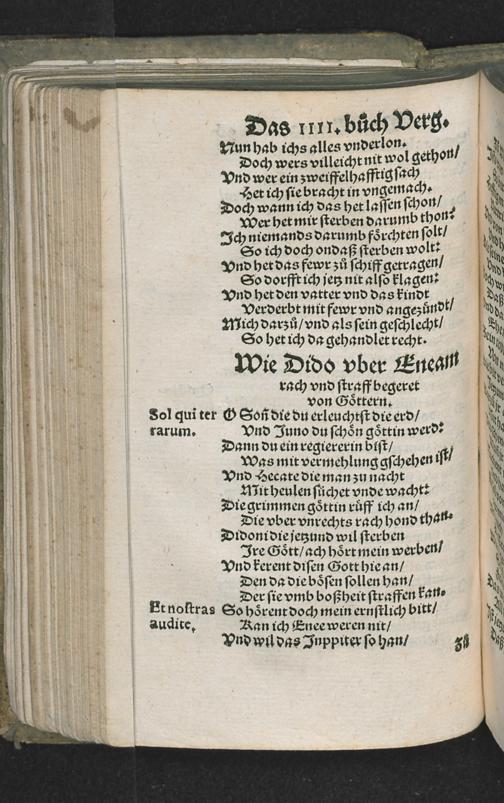 Das IIII. bůch Verg.
Nun hab ichs alles vnderlon.
Doch wers villeicht nit wol gethon/
Vnd wer ein zweiffelhafftig sach
Het ich sie bracht in vngemach.
Doch wann ich das het lassen schon/
Wer het mir sterben darumb thon?
Ich niemands darumb förchten solt/
So ich doch ondaß sterben wolt:
Vnd het das fewr zů schiff getragen/
So dorfft ich jetz nit also klagen:
Vnd het den vatter vnd das kindt
Verderbt mit fewr vnd angezündt/
Mich darzů/ vnd als sein geschlecht/
So het ich da gehandlet recht.
Wie Dido vber Eneam
rach vnd straff begeret
von Göttern.
Sol qui ter
rarum.
O Soñ die du erleuchtst die erd/
Vnd Juno du schön göttin werd:
Dann du ein regiererin bist/
Was mit vermehlung gschehen ist/
Vnd Hecate die man zu nacht
Mit heulen sůchet vnde wacht:
Die grimmen göttin rüff ich an/
Die vber vnrechts rach hond than.
Didoni die jetzund wil sterben
Ire Gött/ ach hört mein werben/
Vnd kerent disen Gott hie an/
Den da die bösen sollen han/
Der sie vmb boßheit straffen kan.
Et nostras
audite.
So hörent doch mein ernstlich bitt/
Kan ich Enee weren nit/
Vnd wil das Juppiter so han/